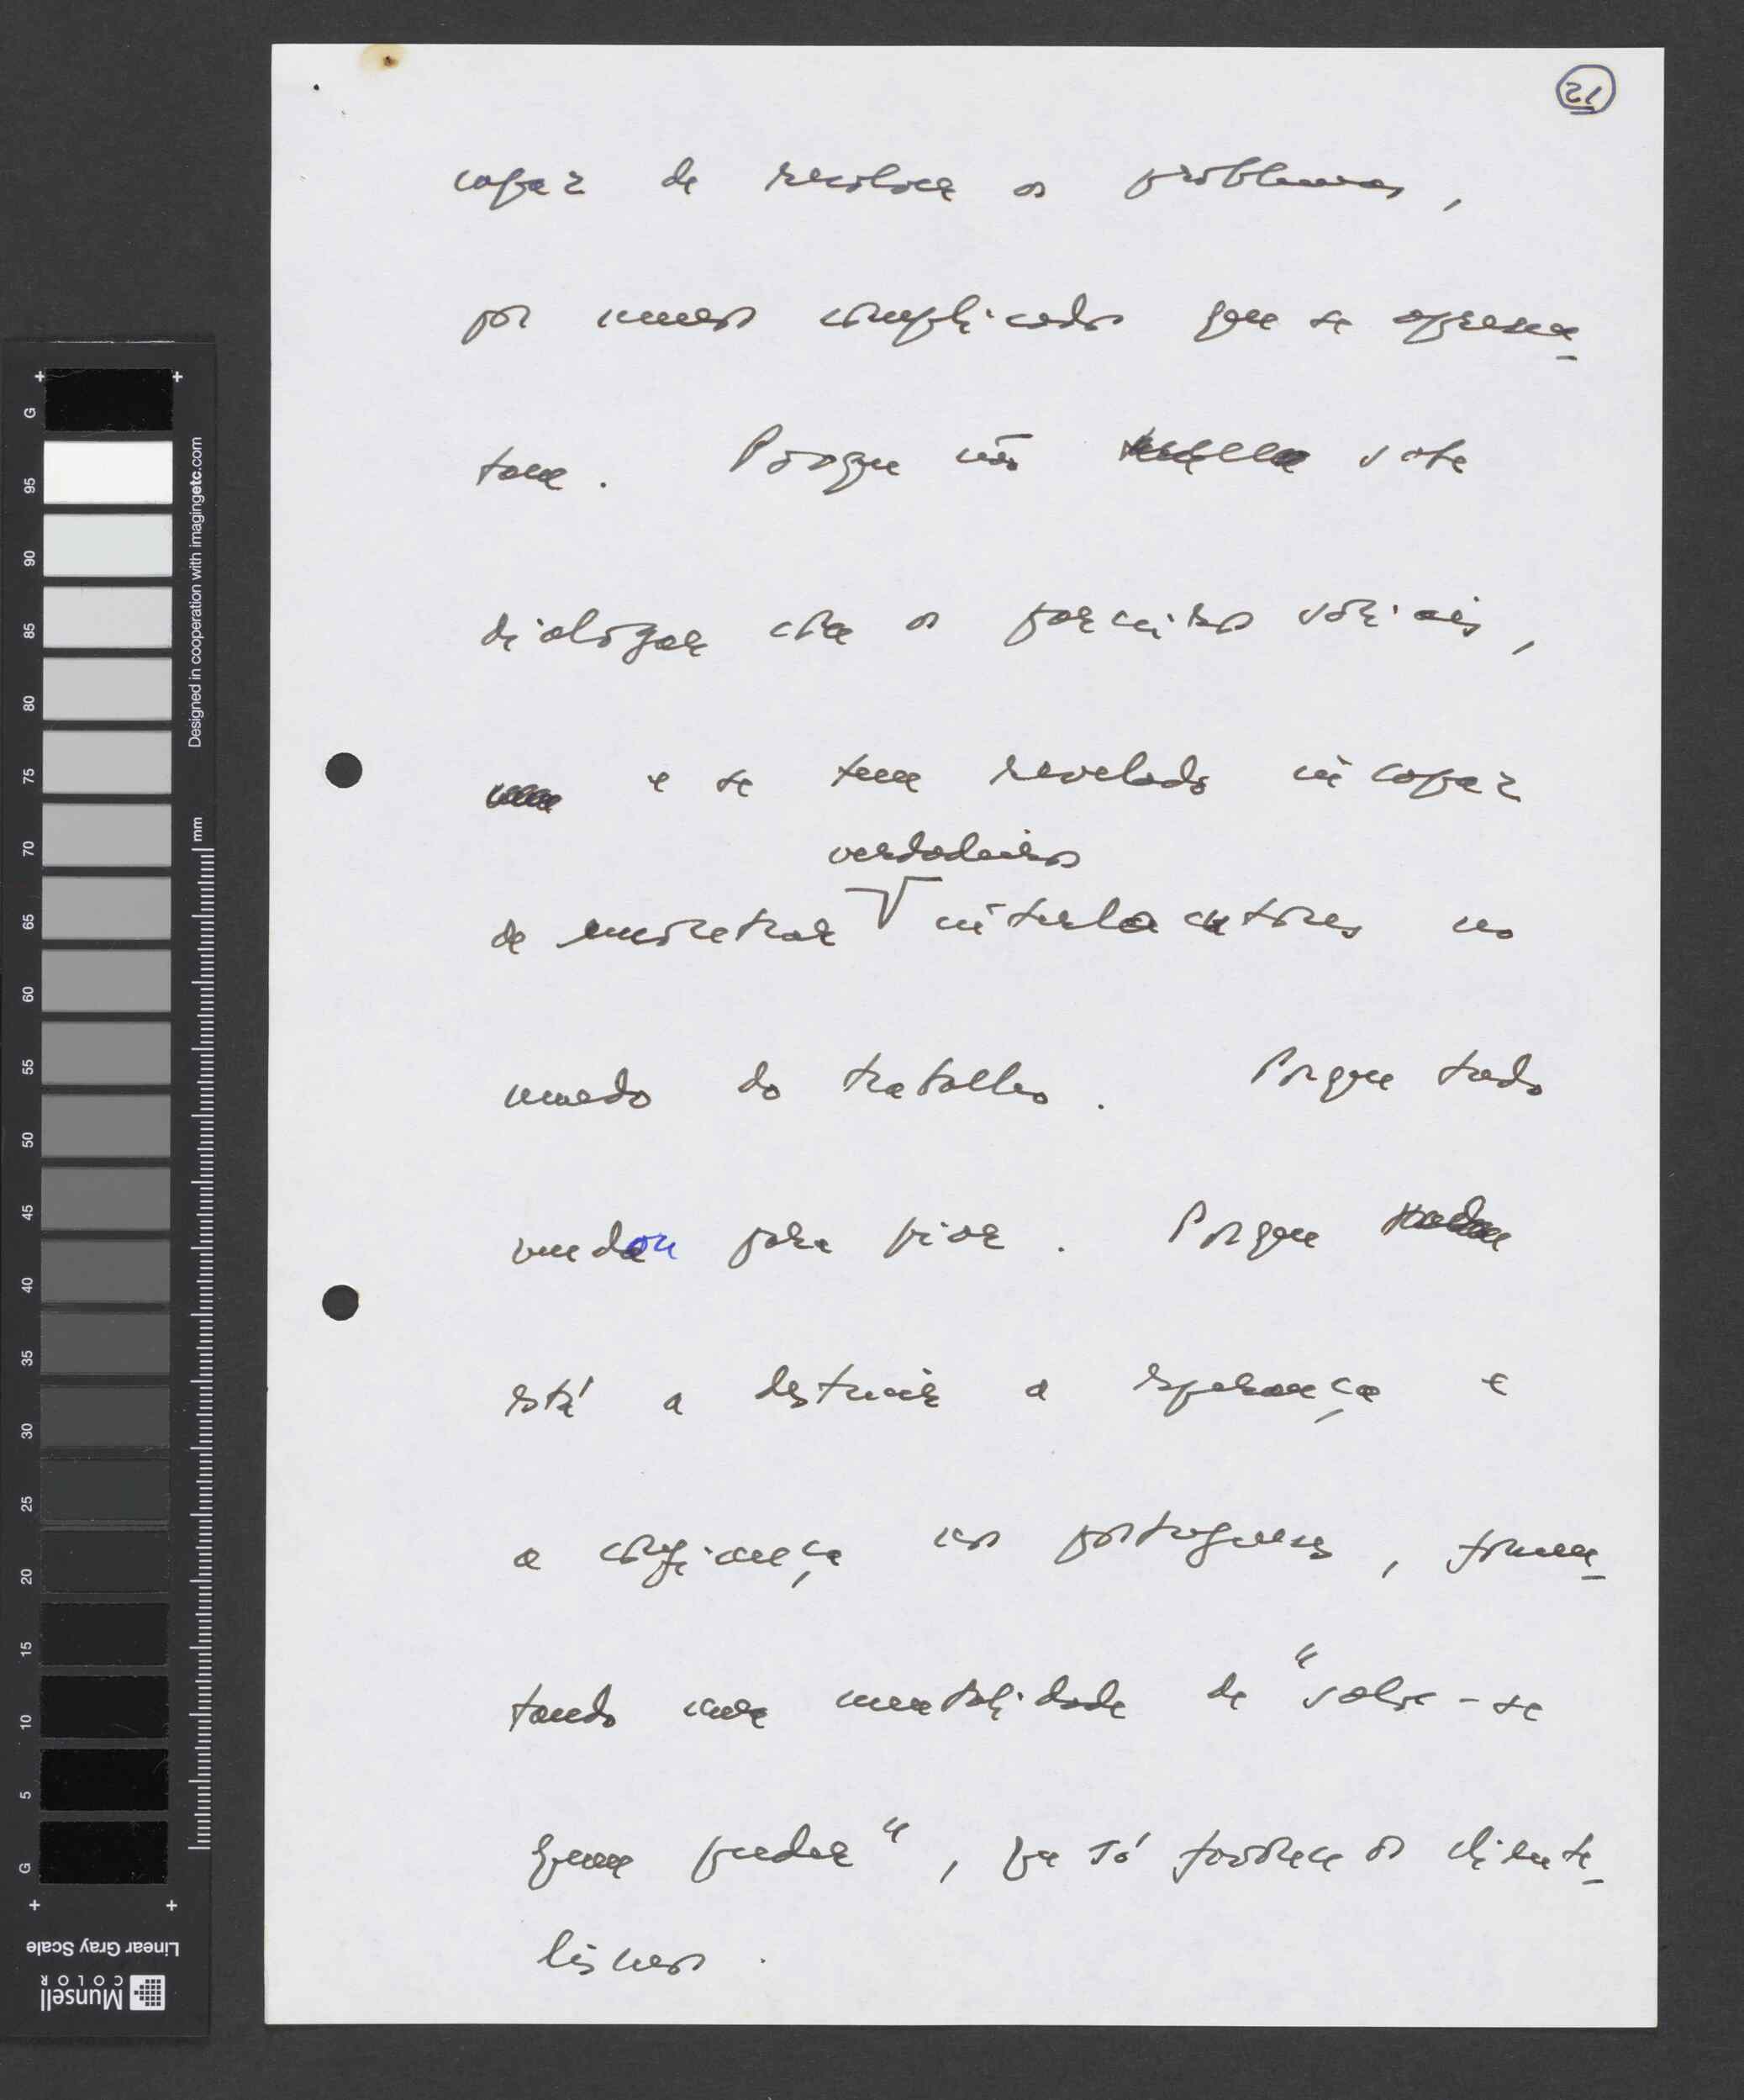 21
capaz de resolver os problemas,
por menos complicados que se apresen-
tem. Porque não sabe
dialogar com os parceiros sociais,
e se tem revelado incapaz
verdadeiros
de encontrar interlocutores no
mundo do trabalho. Porque tudo
mudou para pior. Porque
está a destruir a esperança e
a confiança nos portugueses, fomen-
tando uma mentalidade de "salve-se
quem puder", que só favorece os cliente-
lismos.
G
95
90
85
80
75
70
65
60
55
50
45
40
35
30
25
20
15
10
5
G
mm
Designed in cooperation with imagingetc.com
Linear Gray Scale
Munsell
COLOR